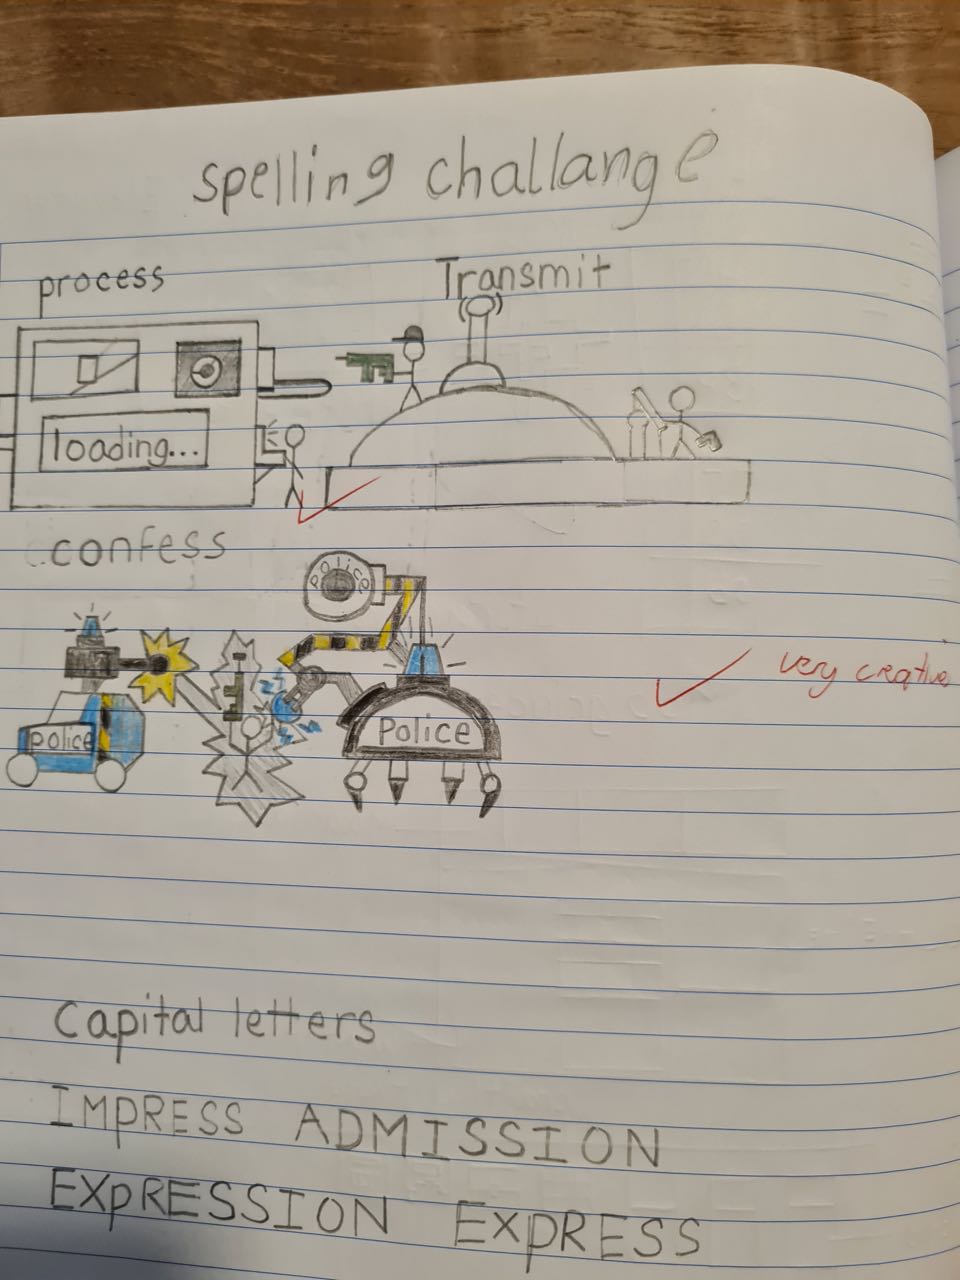 spelling challange
process
Transmit
loading...
confess
police
police
Police
very creative
Capital letters
IMPRESS ADMISSION
EXPRESSION EXPRESS